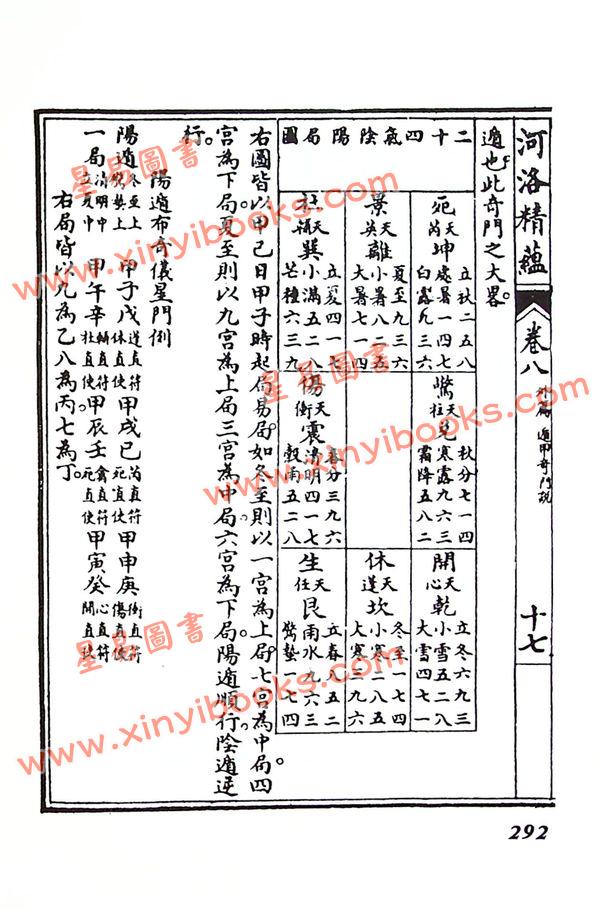 河洛精蘊 卷八 外篇 遁甲奇門説 十七
遁也此奇門之大畧。
二十四氣陰陽局圖
死 天芮 坤 立秋二五八 處暑一四七 白露九三六
驚 天柱 兌 秋分七一四 寒露九六三 霜降五八二
開 天心 乾 立冬六九三 小雪五二八 大雪四七一
景 天英 離 夏至九三六 小暑八二五 大暑七一四
休 天蓬 坎 冬至一七四 小寒二八五 大寒三九六
杜 天輔 巽 立夏四一七 小滿五二八 芒種六三九
傷 天衝 震 春分三九六 清明四一七 穀雨五二八
生 天任 艮 立春八五二 雨水九六三 驚蟄一七四
右圖皆以甲己日甲子時起局易局如冬至則以一宮為上局。七宮為中局四
宮為下局。夏至則以九宮為上局三宮為中局六宮為下局。陽遁順行。陰遁逆
行。
陽遁布奇儀星門例
陽遁冬至上驚蟄上 甲子戊蓬直符休直使 甲戌己芮直符死直使 甲申庚衝直符傷直使
一局清明中立夏中 甲午辛輔直符杜直使 甲辰壬禽直符死直使 甲寅癸心直符開直使
右局皆以九為乙八為丙七為丁。
292
星易圖書
www.xinyibooks.com
星易圖書
www.xinyibooks.com
星易圖書
www.xinyibooks.com
星易圖書
www.xinyibooks.com